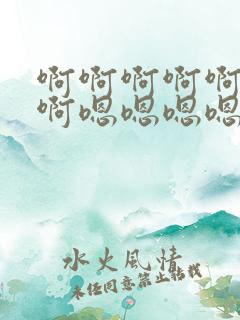 啊啊啊啊啊
啊嗯嗯嗯嗯
水火風情
未任同意禁止转载